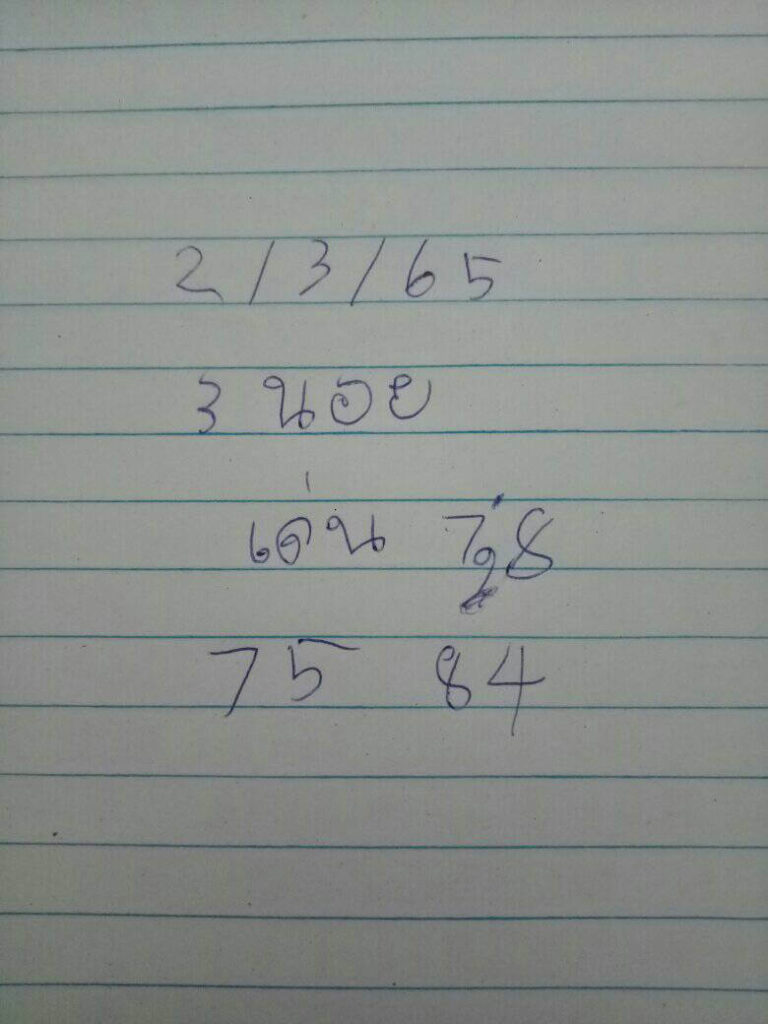 2/3/65
3 นอย
เด่น 7,8
75 84